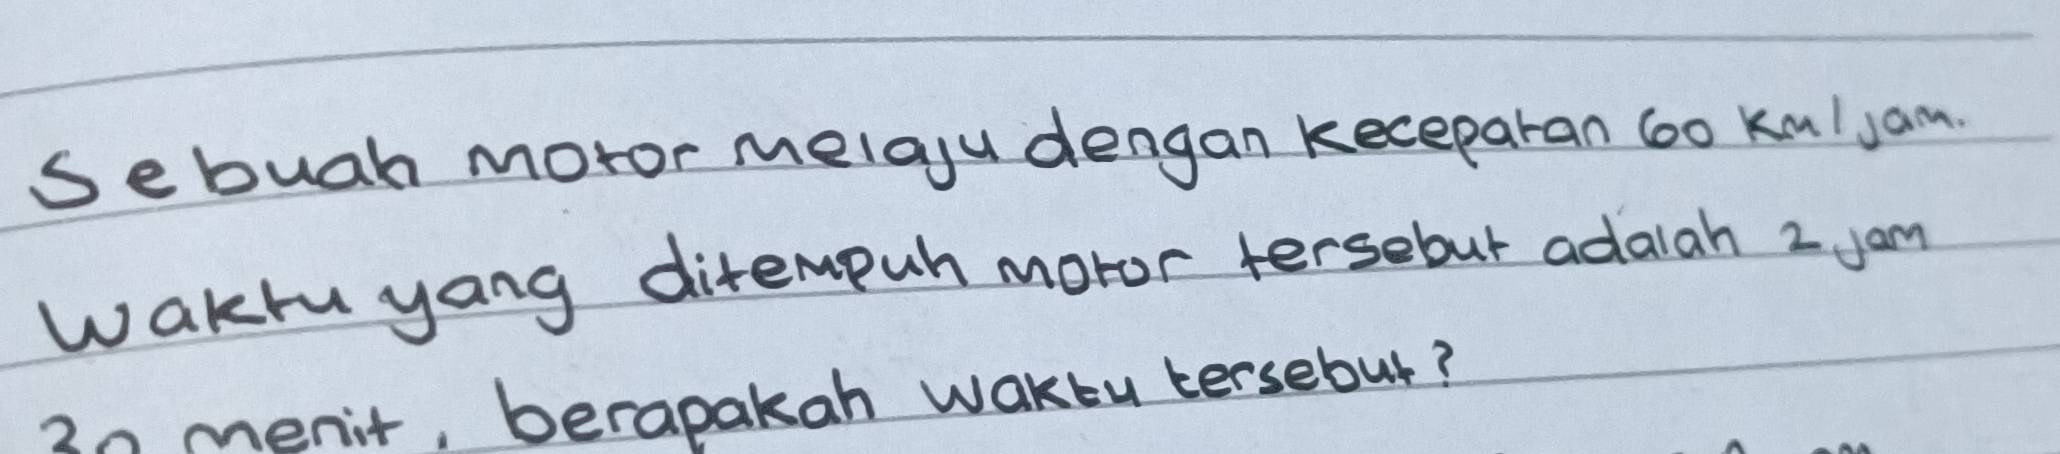 Sebuah motor melaju dengan kecepatan 60 km/jam.
Waktu yang ditempuh motor tersebut adalah 2 jam
30 menit, berapakah waktu tersebut?